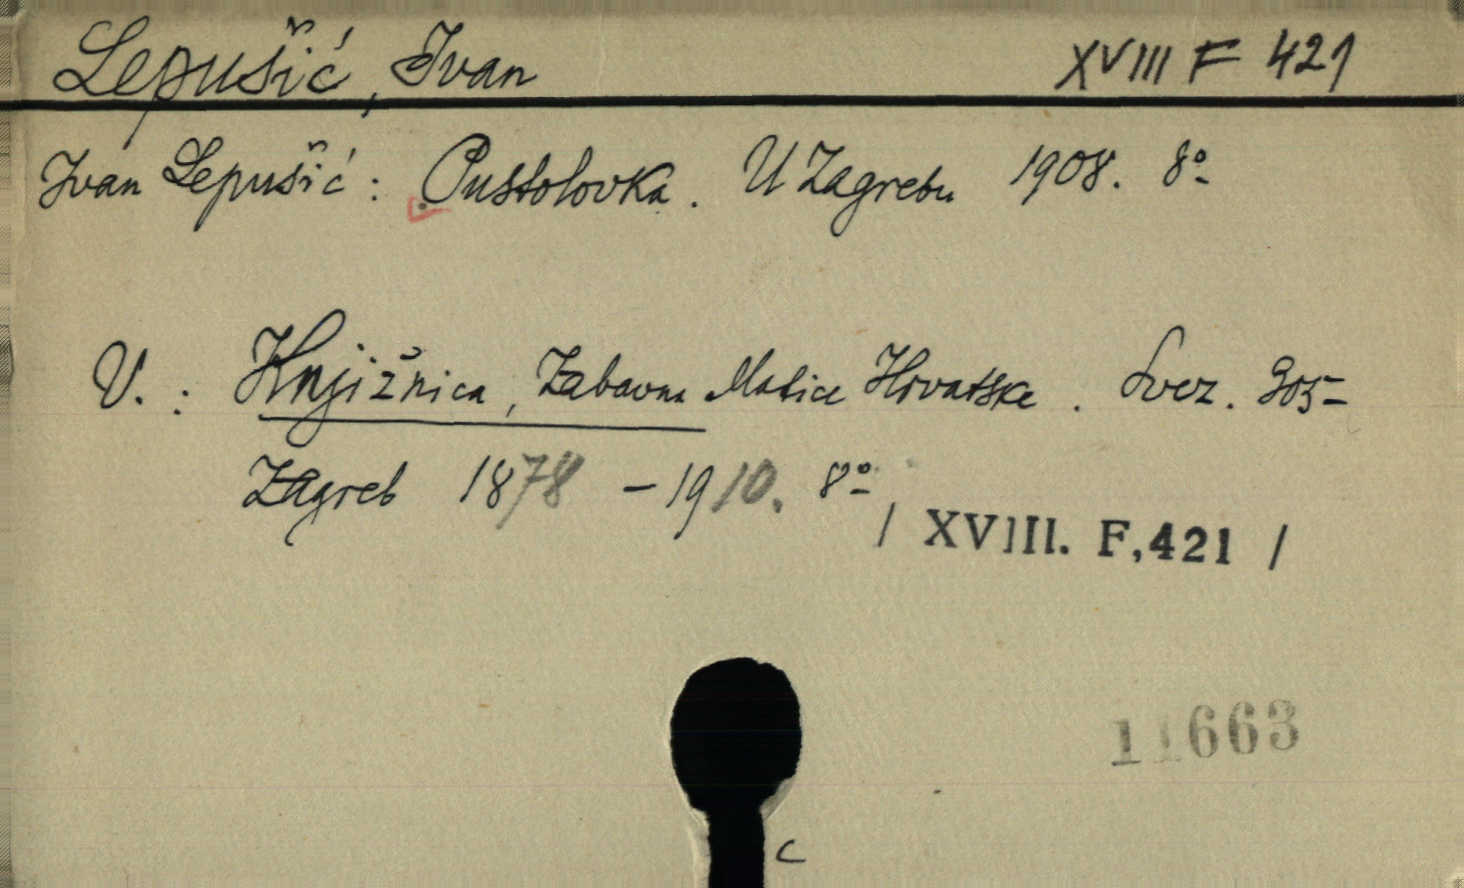 Lepušić, Ivan XVIII F 421
Ivan Lepušić: Pustolovka. U Zagrebu 1908. 8º
V.: Knjižnica, Zabavna Matice Hrvatske. Svez. 305-
Zagreb 1878 - 1910. 8º
/ XVIII. F,421 /
11663
C